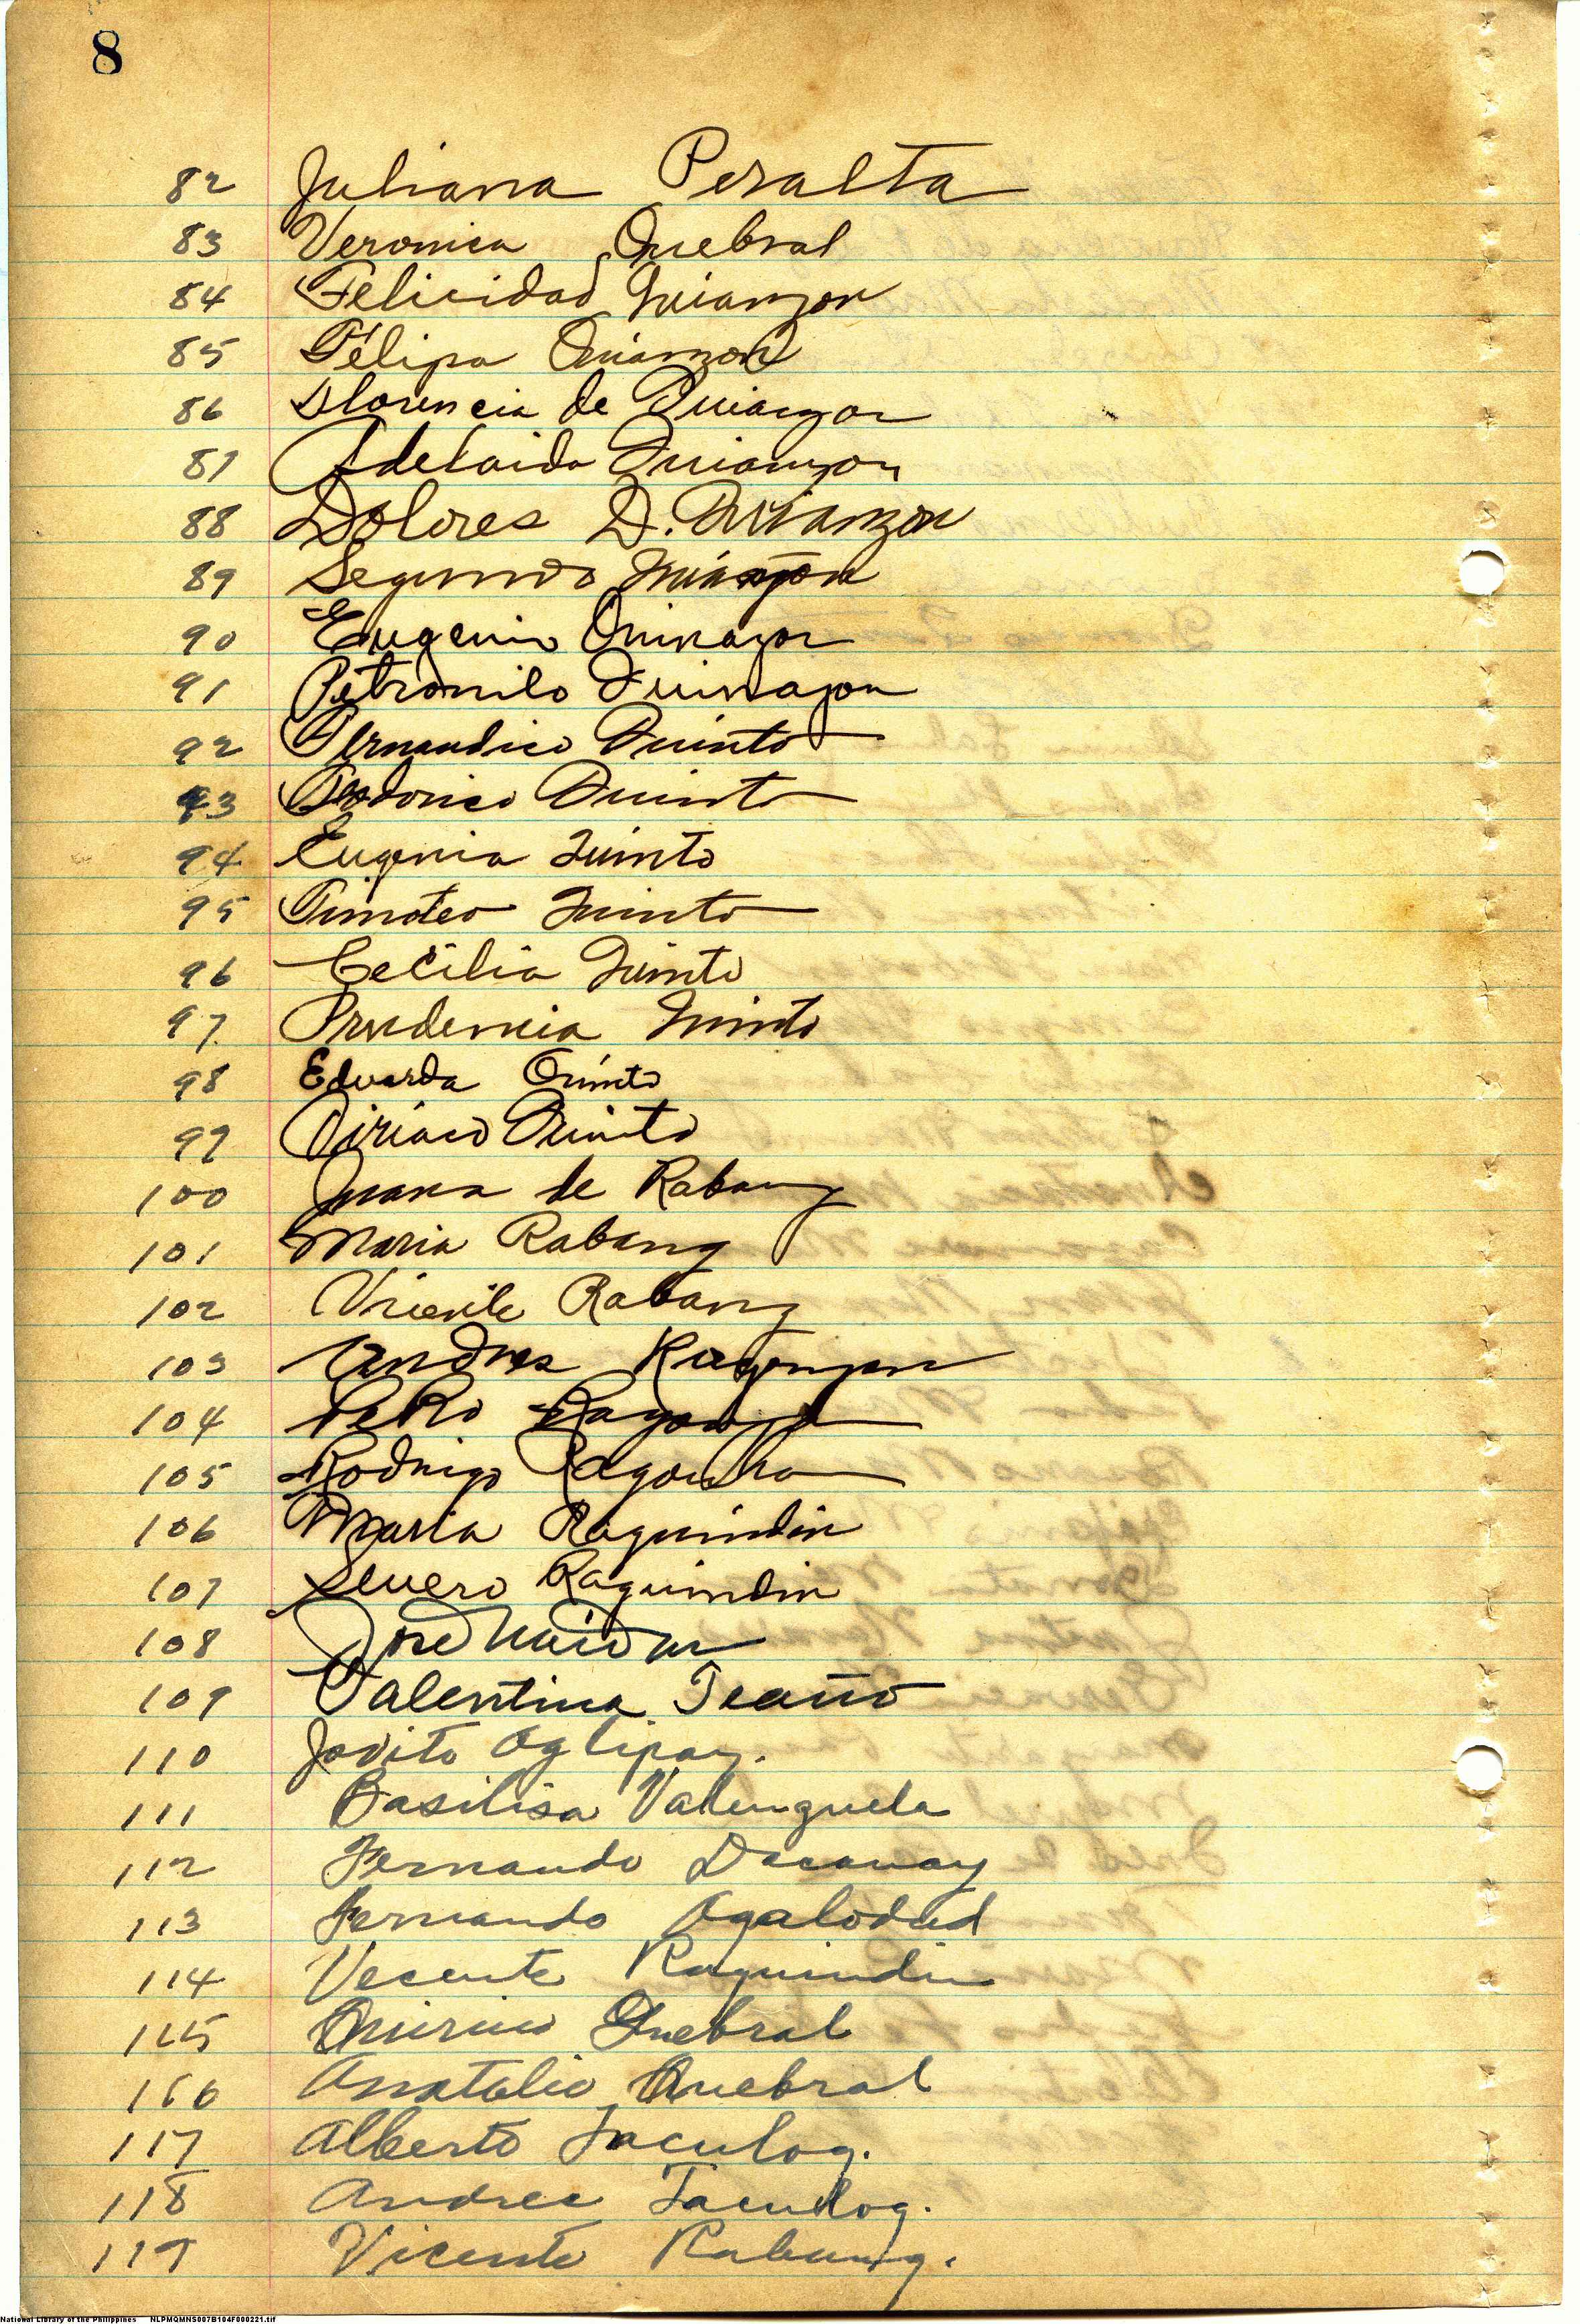 8
82 Juliana Peralta
83 Veronica Quebral
84 Felicidad Quianzon
85 Felipa Quianzon
86 Florencia de Quianzon
87 Adelaida Quianzon
88 Dolores D. Quianzon
89 Segundo Quianzon
90 Eugenio Quinazon
91 Petronilo Quinazon
92 Fernandico Quinto
93 Quinto
94 Eugenia Quinto
95 Timoteo Quinto
96 Cecilia Quinto
97 Prudencia Quinto
98 Eduarda Quinto
99 Ciriaco Quinto
100 Juana de Rabang
101 Maria Rabang
102 Vicente Rabang
103 Andres
104 Pedro
105 Rodrigo
106 Maria Raguindin
107 Severo Raguindin
108 Jose
109 Valentina Teaño
110 Jovito Oglipay.
111 Basilisa Valenzuela
112 Fernando Dacanay
113 Fernando Agalodud
114 Vecente Raguindin
115 Quirino Quebral
116 Anatalio Quebral
117 Alberto Taculog.
118 Andres Taculog.
119 Vicente Rabang.
National Library of the Philippines NLPMQMNS007B104F000221.tif